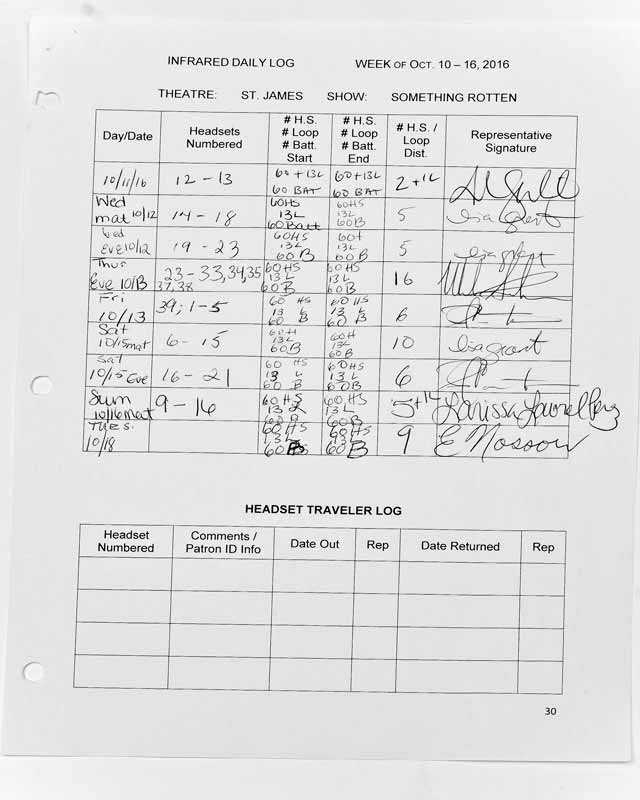 INFRARED DAILY LOG WEEK OF OCT. 10 – 16, 2016
THEATRE: ST. JAMES SHOW: SOMETHING ROTTEN
Day/Date Headsets Numbered # H.S. # Loop # Batt. Start # H.S. # Loop # Batt. End # H.S. / Loop Dist. Representative Signature
10/11/16 12 – 13 60 + 13L 60 BAT 60 + 13L 60 BAT 2 + 1L
Wed mat 10/12 14 – 18 60HS 13L 60 Batt 60HS 13L 60B 5 Lisa Grant
Wed Eve 10/12 19 – 23 60HS 13L 60B 60H 13L 60B 5 Lisa Grant
Thur Eve 10/13 23 – 33, 34, 35 37, 38 60HS 13L 60B 60HS 13L 60B 16
Fri 10/13 39; 1-5 60 HS 13 L 60 B 60HS 13 L 60 B 6
Sat 10/15 mat 6 – 15 60H 13L 60B 60H 13L 60B 10 Lisa Grant
Sat 10/15 Eve 16 – 21 60 HS 13 L 60 B 60HS 13 L 60B 6
Sun 10/16 mat 9 – 16 60 HS 13 L 60 B 60 HS 13 L 60B 5 + 1L Larissa
TUES. 10/18 60 HS 13L 60 B 60 HS 13L 60 B 9 E Mosson
HEADSET TRAVELER LOG
Headset Numbered Comments / Patron ID Info Date Out Rep Date Returned Rep
30